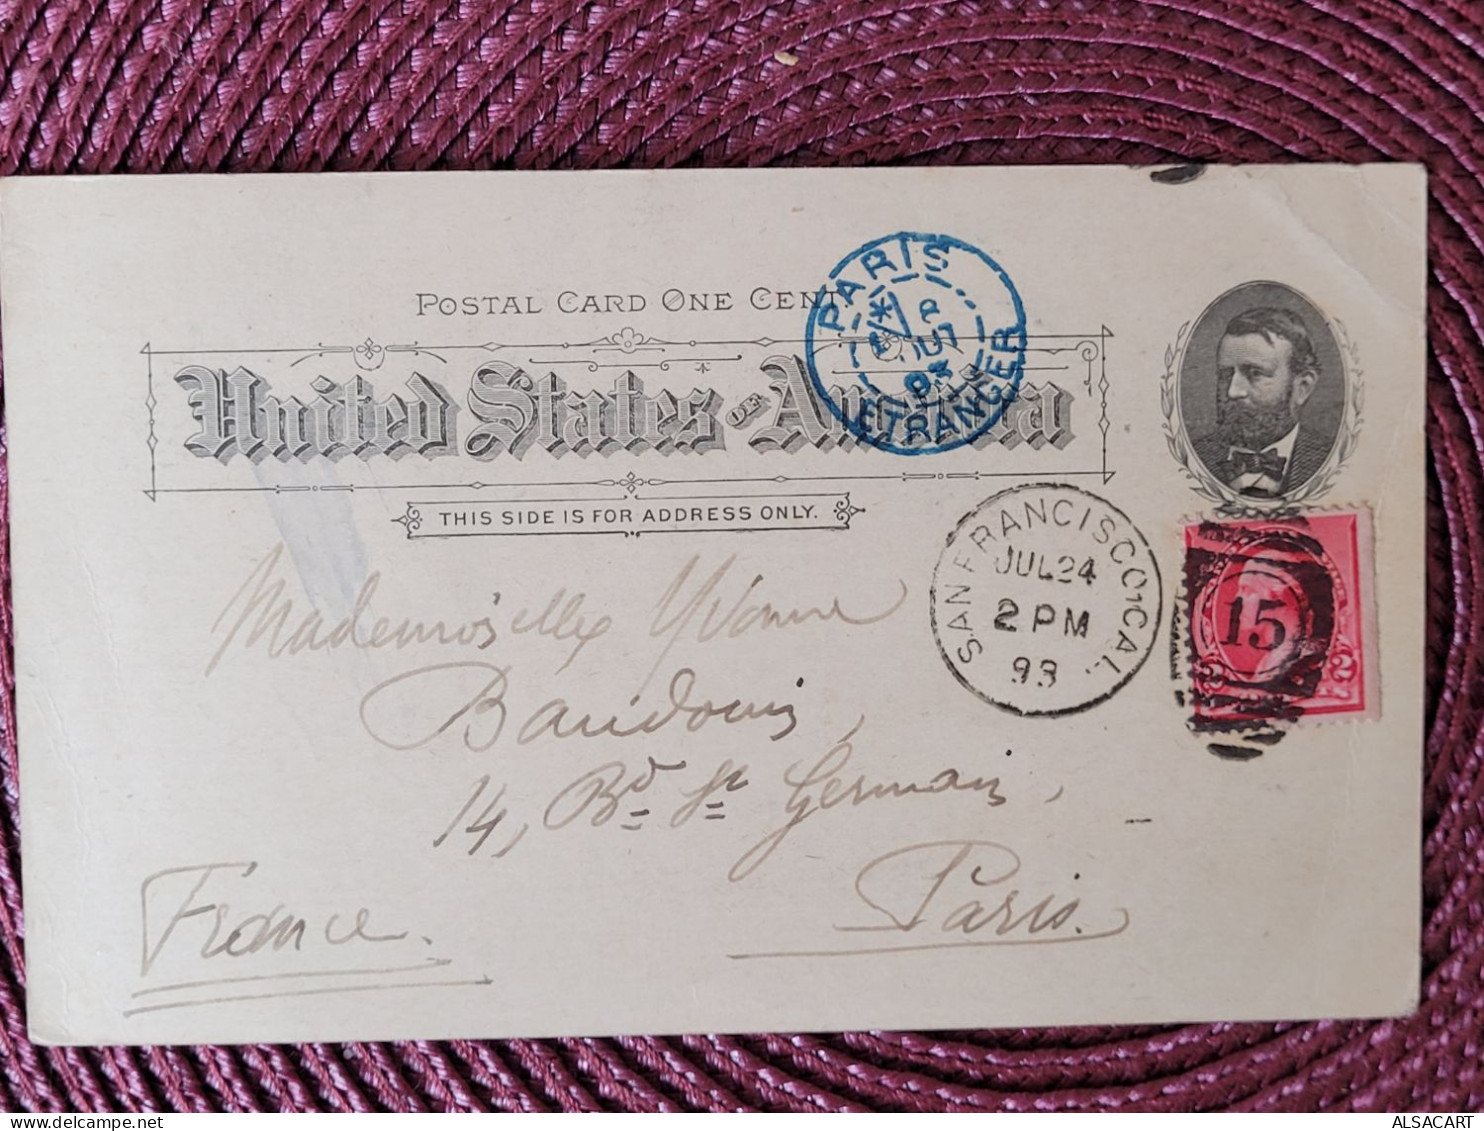 POSTAL CARD ONE CENT
United States OF America
THIS SIDE IS FOR ADDRESS ONLY.
PARIS
93
ETRANGER
SAN FRANCISCO, CAL.
JUL 24
2 PM
93
15
2 2
Mademoiselle Yvonne
Baudouin,
14, Bd. St Germain,
Paris.
France.
ALSACART